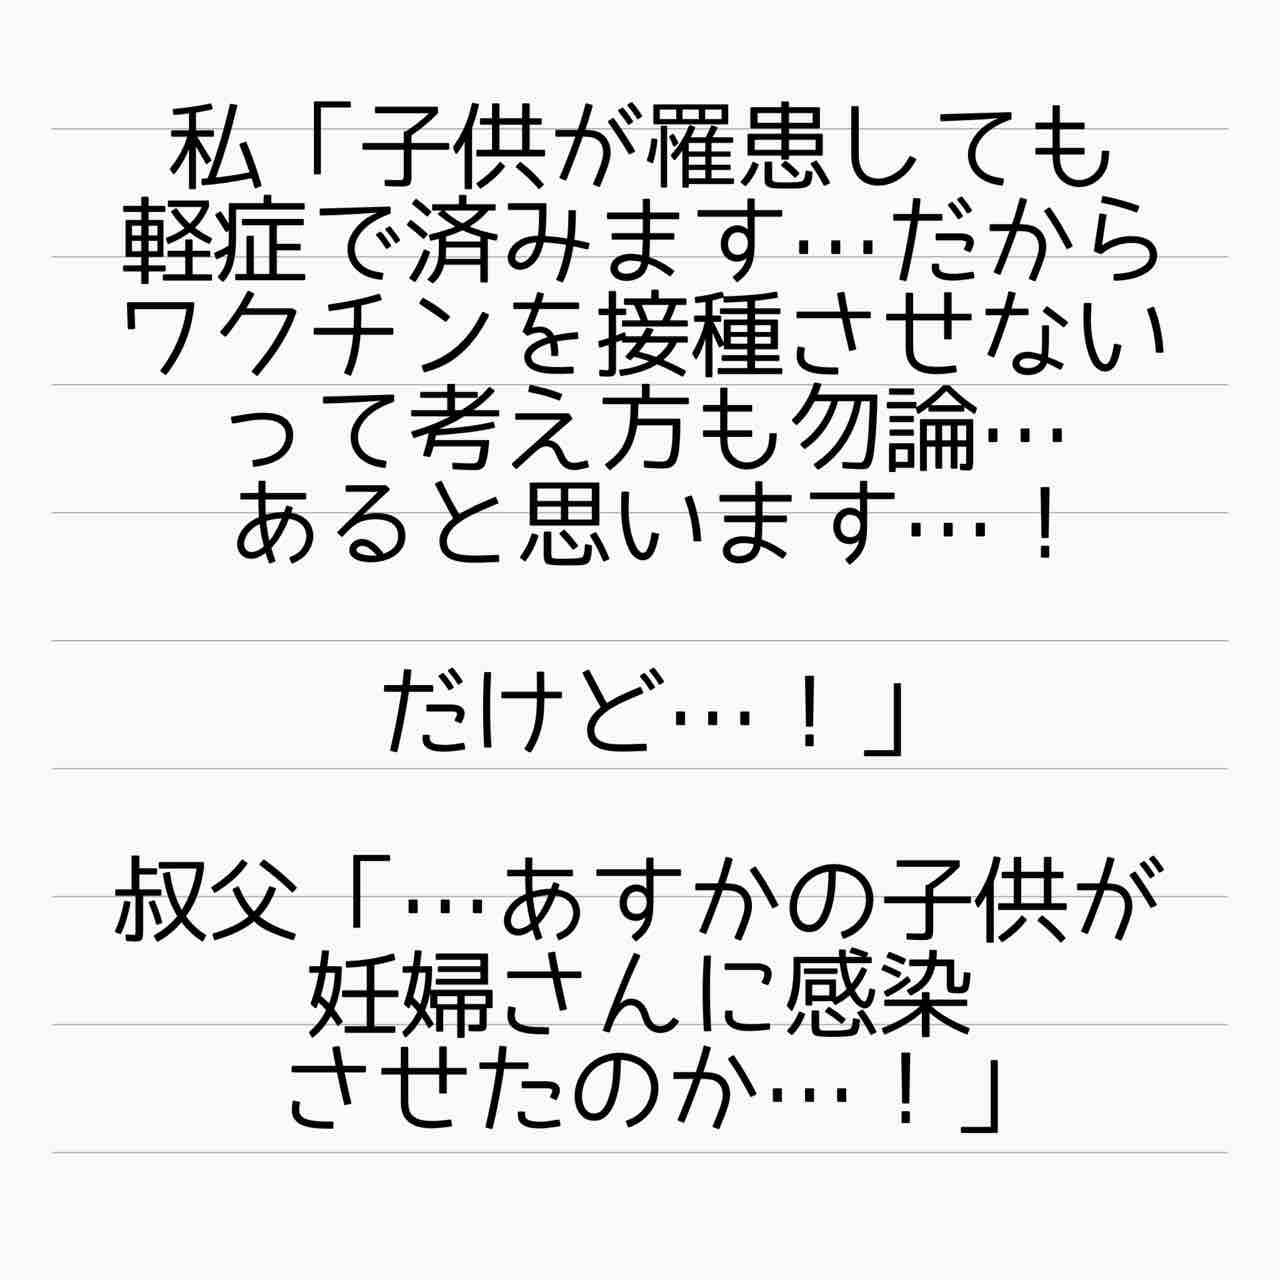 私「子供が罹患しても
軽症で済みます…だから
ワクチンを接種させない
って考え方も勿論…
あると思います…！
だけど…！」
叔父「…あすかの子供が
妊婦さんに感染
させたのか…！」